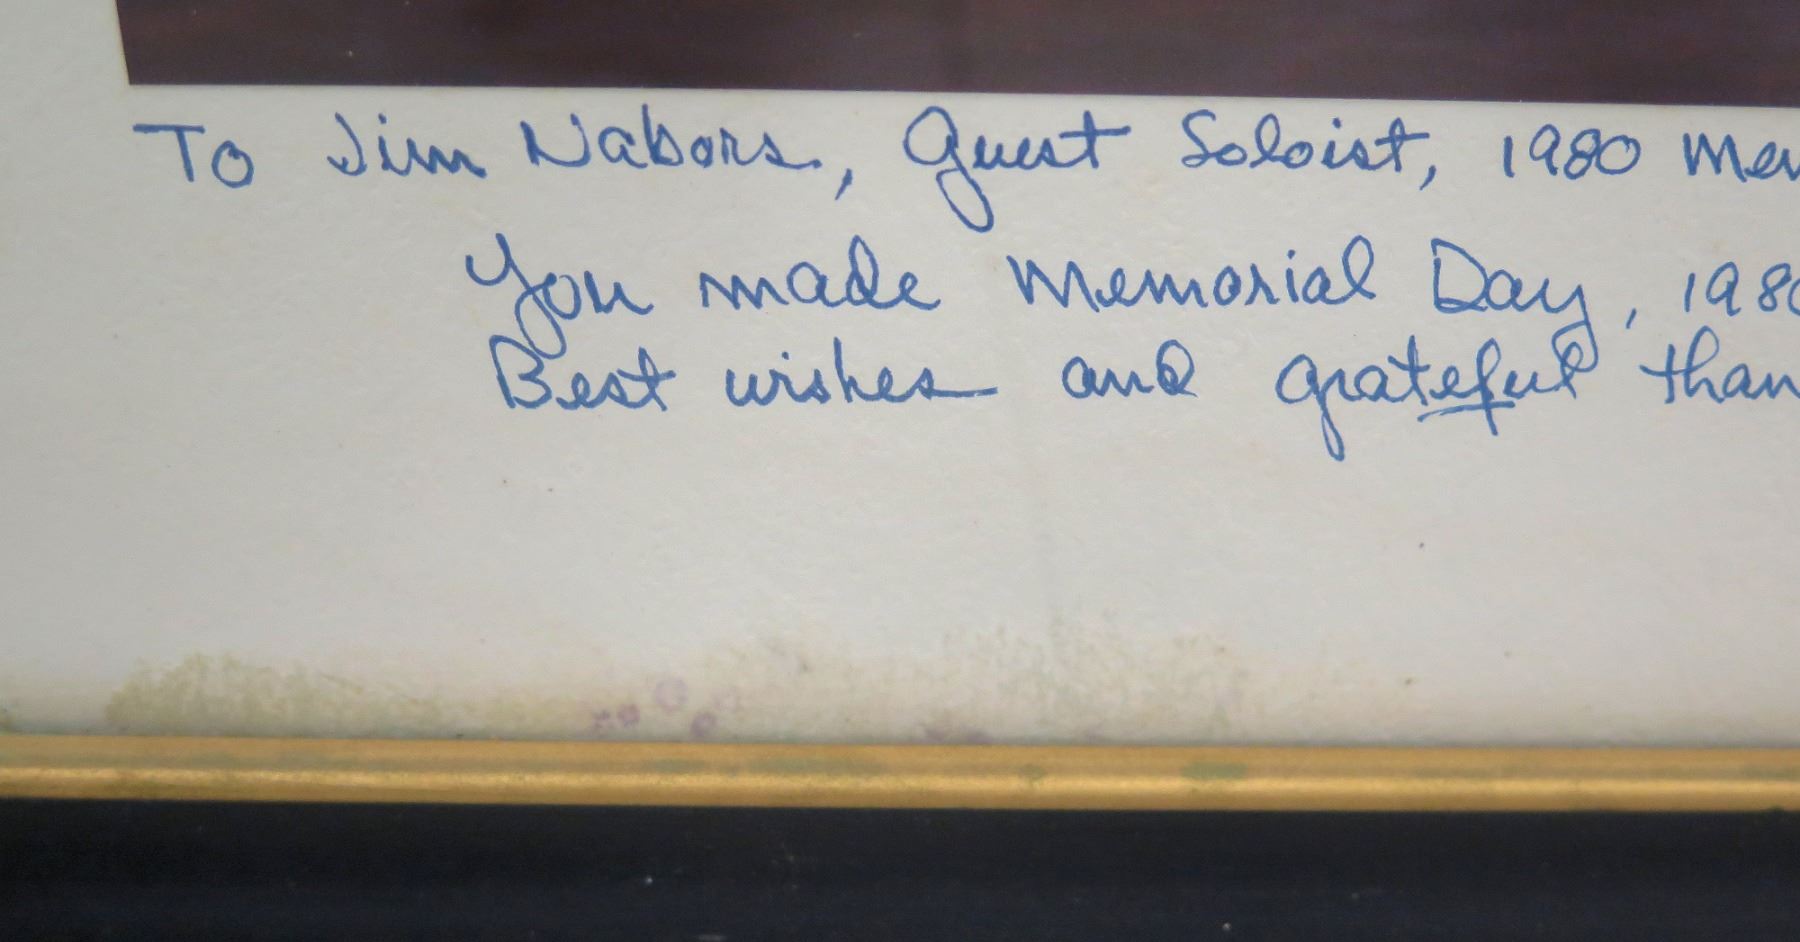 To Jim Nabors, Guest Soloist, 1980 Mem
You made Memorial Day, 1980
Best wishes and grateful than